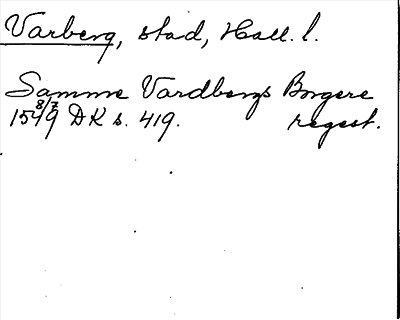 Varberg, stad, Hall. l.
Samme Vardbergs Borgere
8/7
1549 DK s. 419. regest.